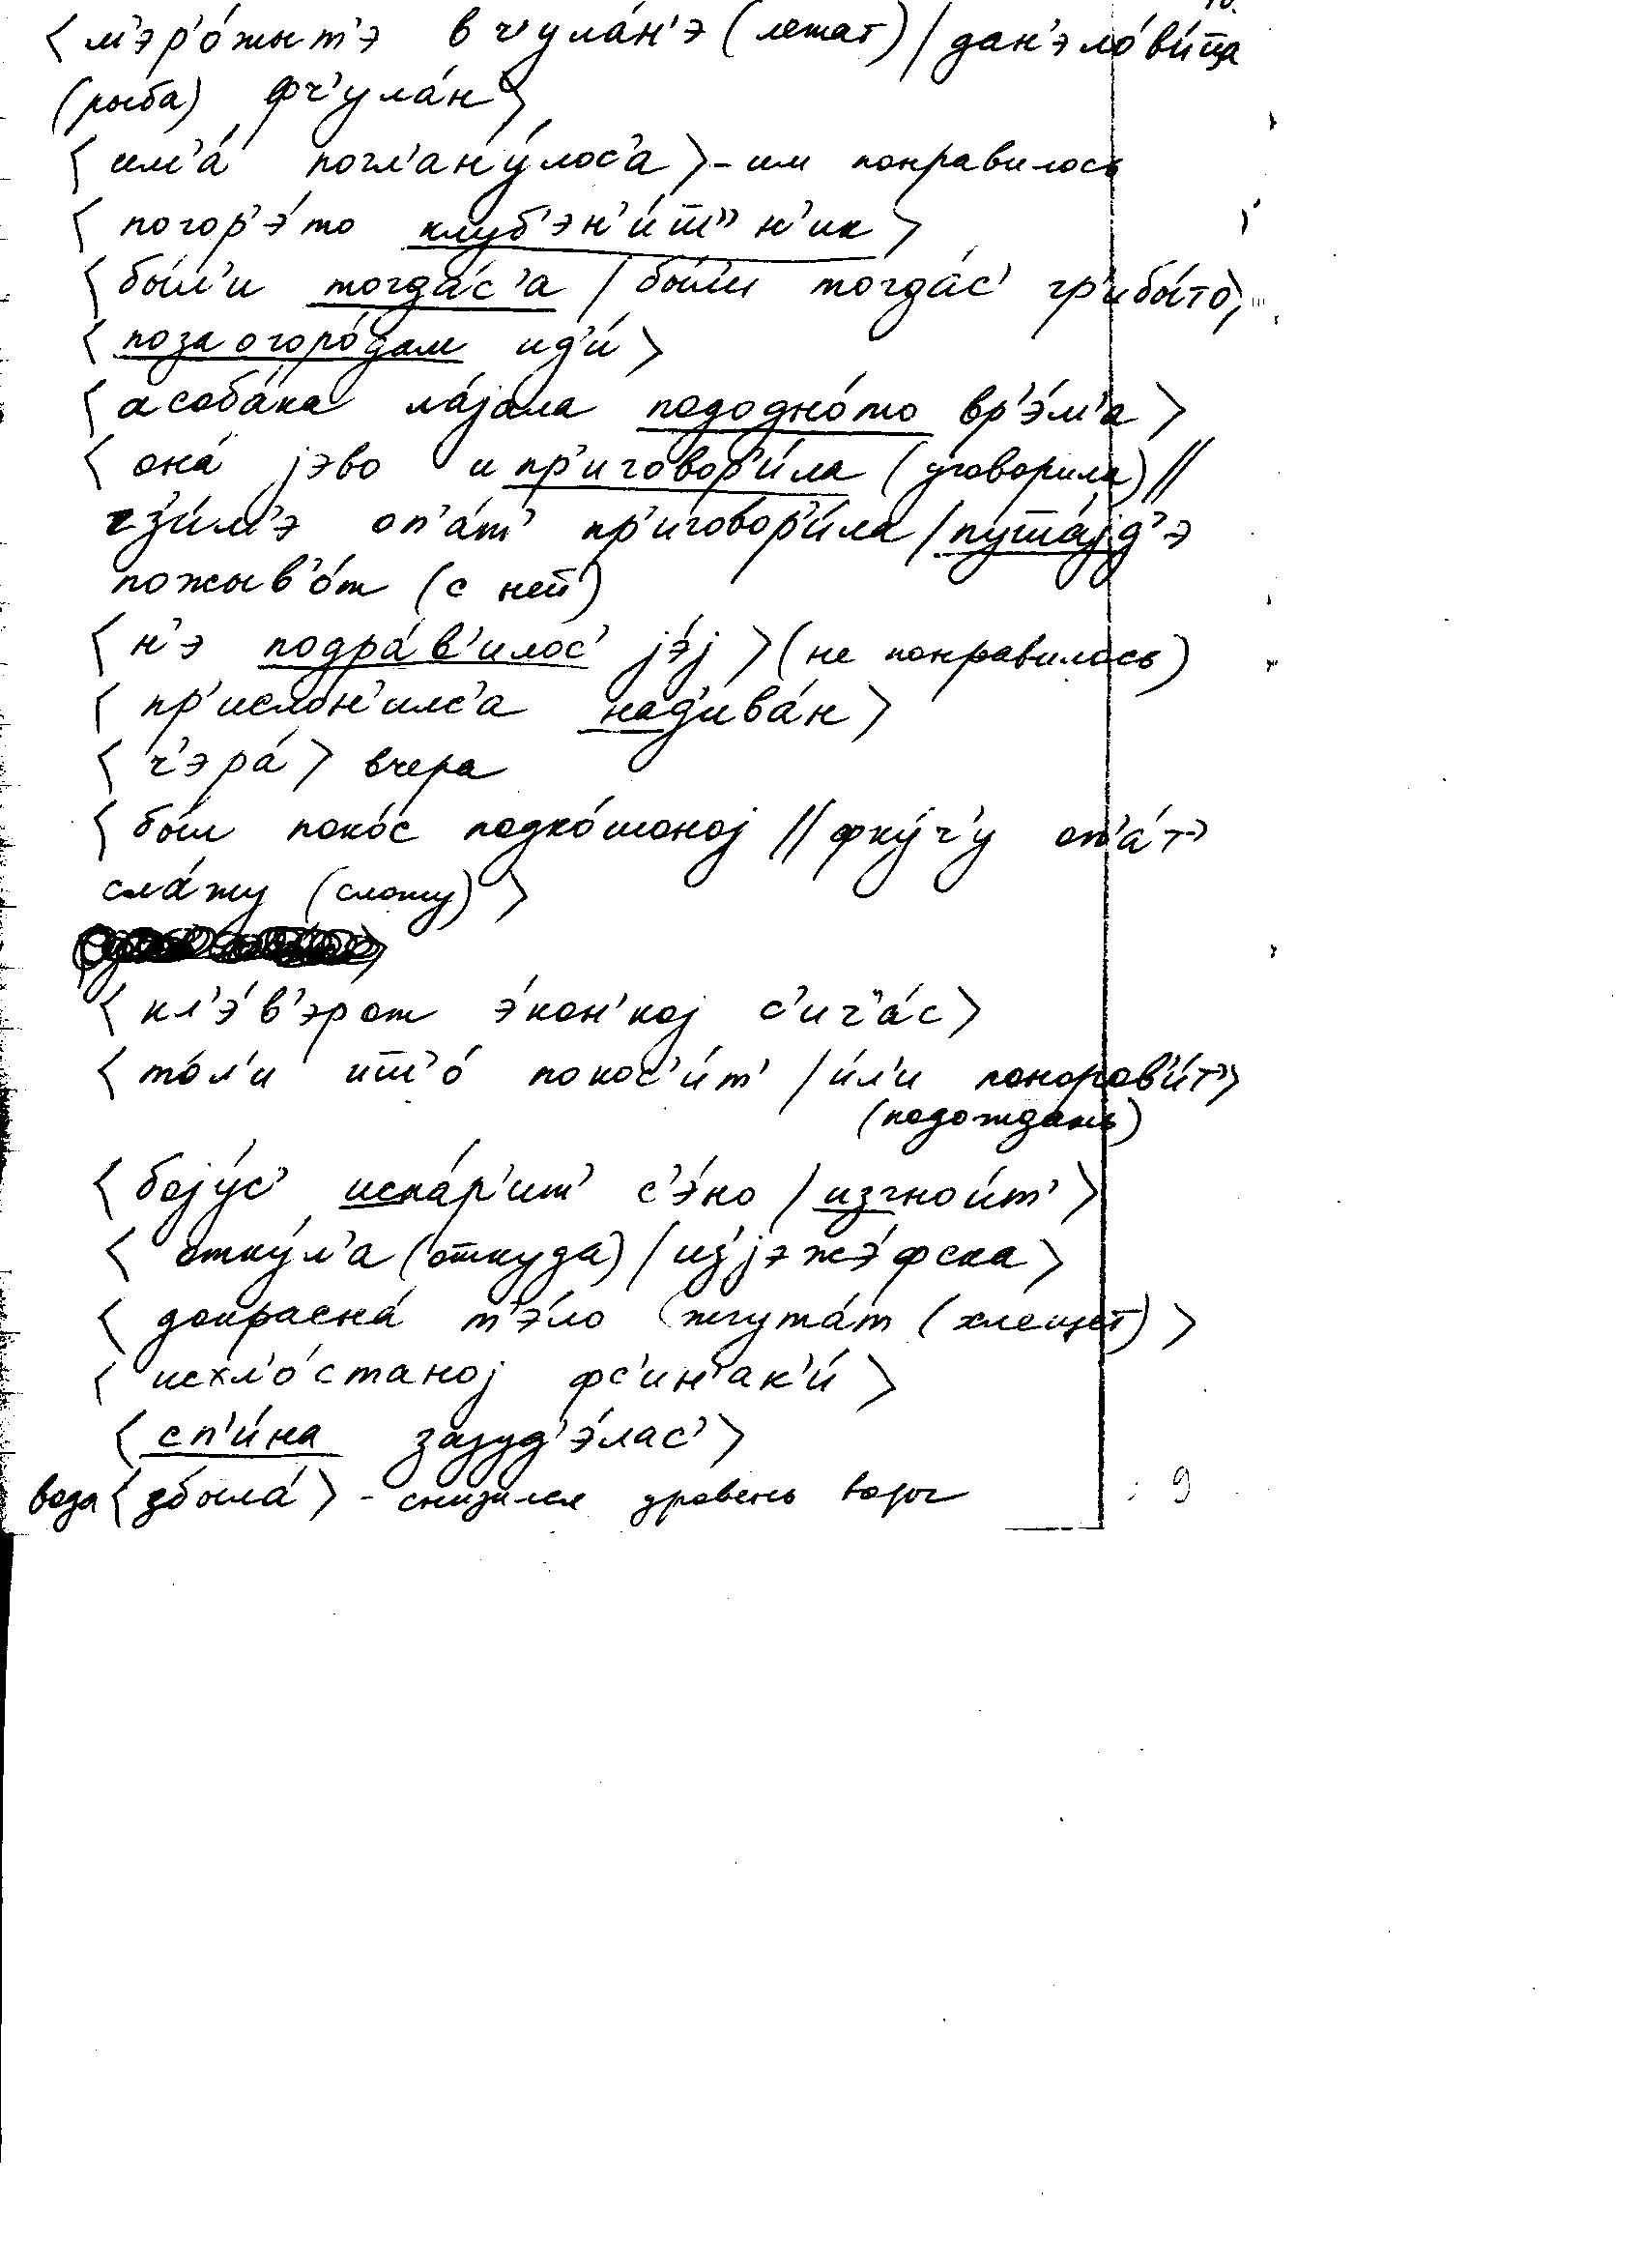 ⟨м'эр'о́жыт'э в ч'ула́н'э (лежат) / дан'эло́в'ица
(рыба) фч'ула́н⟩
⟨им'а́ погл'ану́лос'а⟩ - им понравилось
⟨погор'э́то клуб'эн'и́ш''н'ик⟩
⟨бы́л'и тогда́с'а / бы́л'и тогда́с' гр'ибы́то⟩
⟨поза огоро́дам ид'и́⟩
⟨а соба́ка ла́јала пododно́то вр'э́м'а⟩
⟨она́ јэво и пр'иговор'и́ла (уговорила) //
гз'им'э́ оп'а́т' пр'иговор'и́ла / пуша́јд'э
пожыв'о́т (с ней)
⟨н'э подра́в'илос' јэ́ј⟩ (не понравилось)
⟨пр'ислон'илс'а над'ива́н⟩
⟨ч'эра́⟩ вчера
⟨бы́л поко́с подко́шоној // фку́ч'у оп'а́т'
сла́жу (сложу)⟩
⟨кл'э́в'эрот э́кон'кој с'ич'а́с⟩
⟨то́л'и иш'о́ покос'и́т' / и́л'и поноров'и́т'⟩
(подождать)
⟨бојус' испа́р'ит' с'э́но / изгнои́т'⟩
⟨отку́л'а (откуда) / из'јэжэ́фска⟩
⟨докрасна́ т'э́ло жгута́т (хлещет)⟩
⟨исхл'о́станој фс'ин'ак'и́⟩
⟨сп'и́на зазуд'э́лас'⟩
вода ⟨збыла́⟩ - снизился уровень воды
9